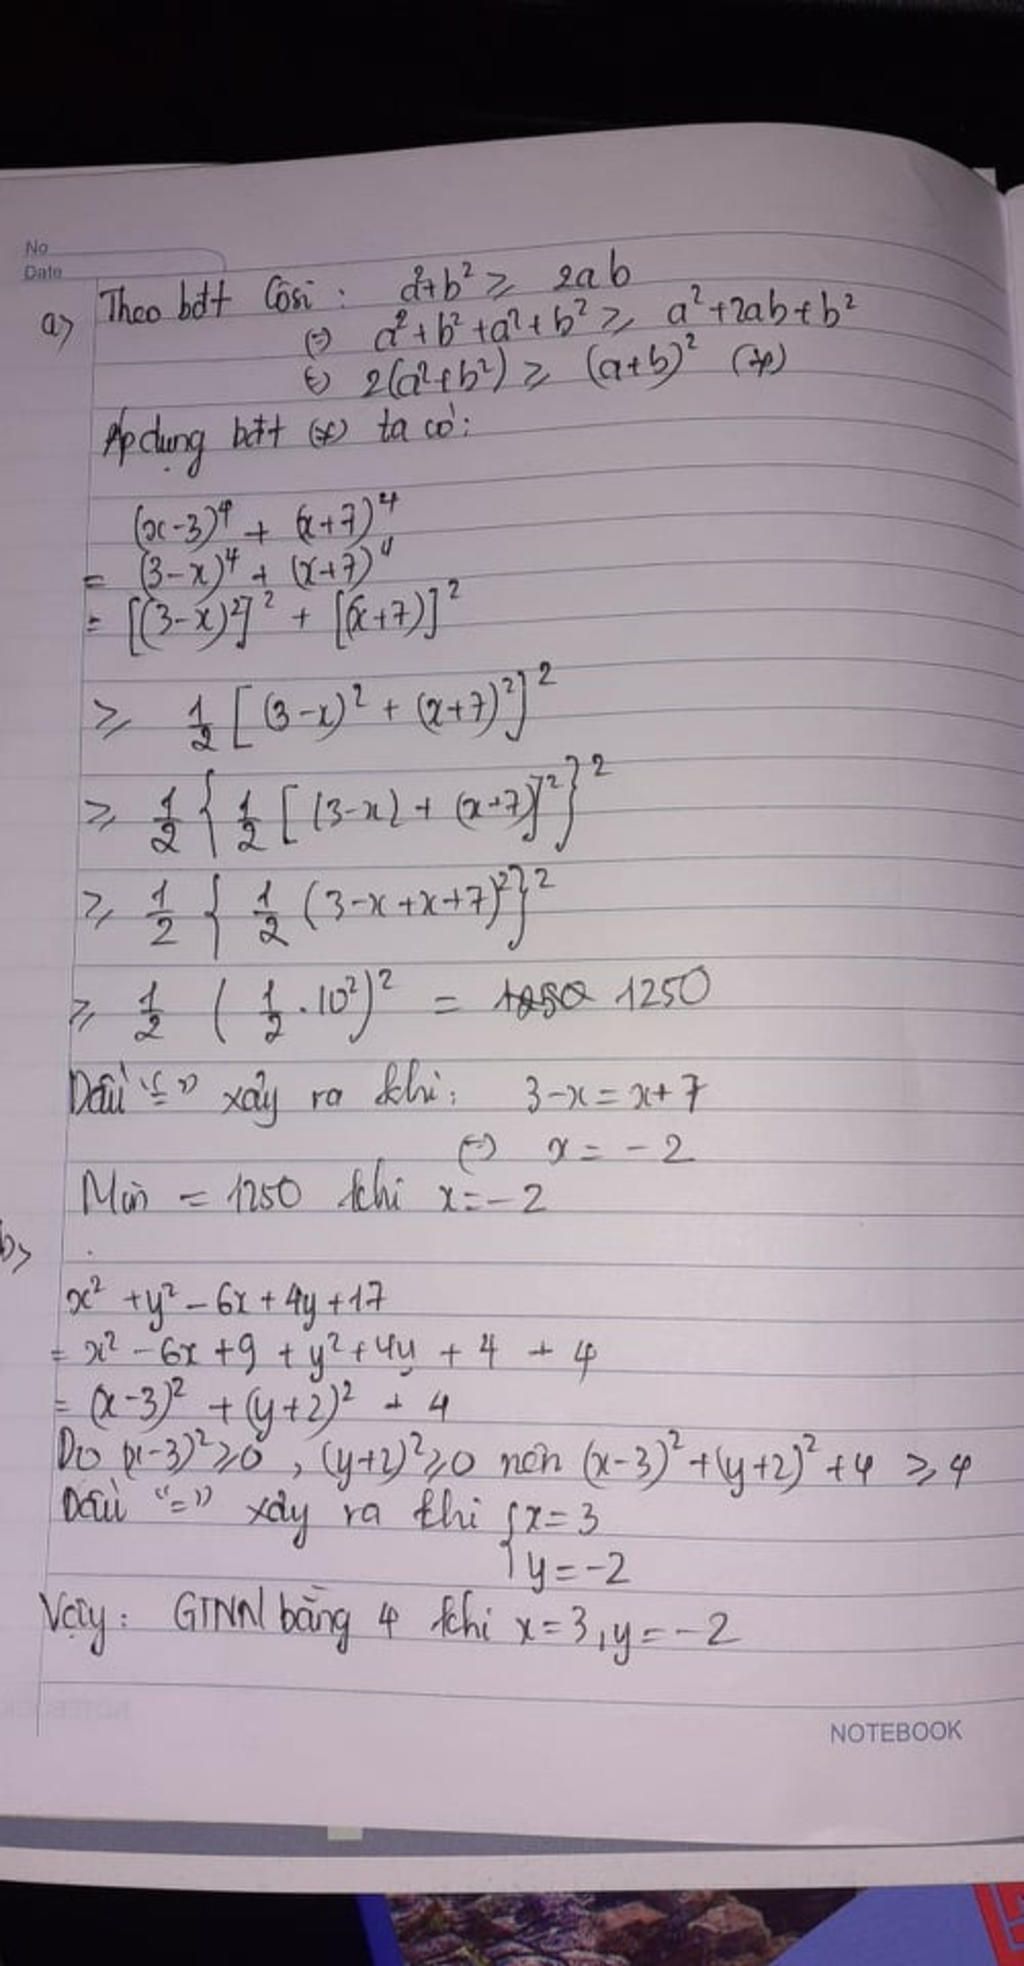 No
Date
a) Theo bđt Côsi : a²+b² ≥ 2ab
(=) a²+b²+a²+b² ≥ a²+2ab+b²
(=) 2(a²+b²) ≥ (a+b)² (*)
Áp dụng bđt (*) ta có:
(x-3)⁴ + (x+7)⁴
= (3-x)⁴ + (x+7)⁴
= [(3-x)²]² + [(x+7)]²
≥ 1/2 [(3-x)² + (x+7)²]²
≥ 1/2 { 1/2 [(3-x) + (x+7)]² }²
≥ 1/2 { 1/2 (3-x+x+7)² }²
≥ 1/2 ( 1/2 . 10²)² = 1250 1250
Dấu "=" xảy ra khi: 3-x = x+7
(=) x = -2
Min = 1250 khi x=-2
b)
x² + y² - 6x + 4y + 17
= x² - 6x + 9 + y² + 4y + 4 + 4
= (x-3)² + (y+2)² + 4
Do (x-3)² ≥ 0 , (y+2)² ≥ 0 nên (x-3)² + (y+2)² + 4 ≥ 4
Dấu "=" xảy ra khi { x = 3
y = -2
Vậy : GTNN bằng 4 khi x = 3, y = -2
NOTEBOOK